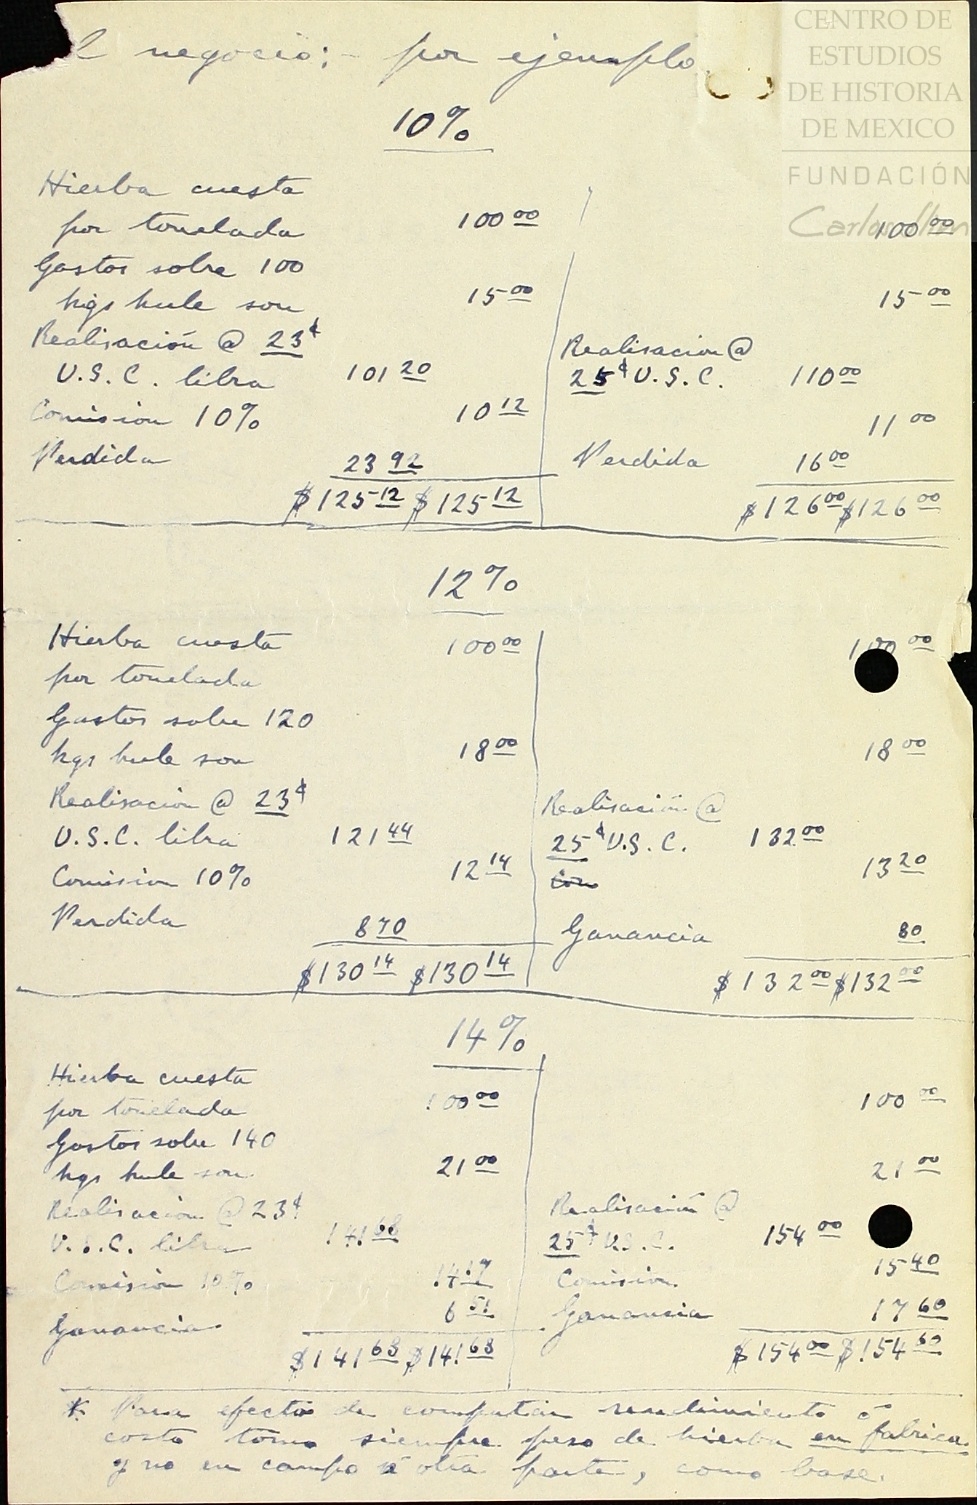 negocio:- por ejemplo
CENTRO DE
ESTUDIOS
DE HISTORIA
DE MEXICO
FUNDACIÓN
Carlos Slim
10%
Hierba cuesta
por tonelada 100 00 100 00
Gastos sobre 100
kgs hule son 15 00 15 00
Realisación @ 23¢ Realisacion @
U.S.C. libra 101 20 25¢ U.S.C. 110 00
Comision 10% 10 12 11 00
Perdida 23 92 Perdida 16 00
$125 12 $125 12 $126 00 $126 00
12%
Hierba cuesta 100 00 100 00
por tonelada
Gastos sobre 120
kgs hule son 18 00 18 00
Realisacion @ 23¢ Realisación @
U.S.C. libra 121 44 25¢ U.S.C. 132 00
Comision 10% 12 14 Com 13 20
Perdida 8 70 Ganancia 80
$130 14 $130 14 $132 00 $132 00
14%
Hierba cuesta
por tonelada 100 00 100 00
Gastos sobre 140
kgs hule son 21 00 21 00
Realisacion @ 23¢ Realisación @
U.S.C. libra 141 68 25¢ U.S.C. 154 00
Comision 10% 14 17 Comision 15 40
Ganancia 6 51 Ganancia 17 60
$141 68 $141 68 $154 00 $154 60
* Para efecto de computar rendimiento ó
costo tomo siempre peso de hierba en fabrica
y no en campo ú otra parte, como base.